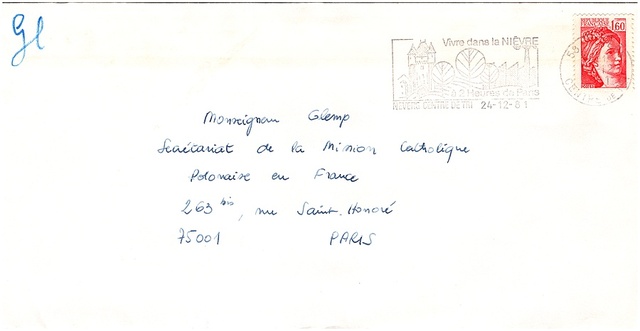 Gl
Vivre dans la NIÈVRE
à 2 Heures de Paris
NEVERS CENTRE DE TRI 24-12-81
58
REPUBLIQUE FRANÇAISE
1,60
Monseigneur Glemp
Secrétariat de la Mission Catholique
Polonaise en France
263 bis, rue Saint-Honoré
75001 PARIS